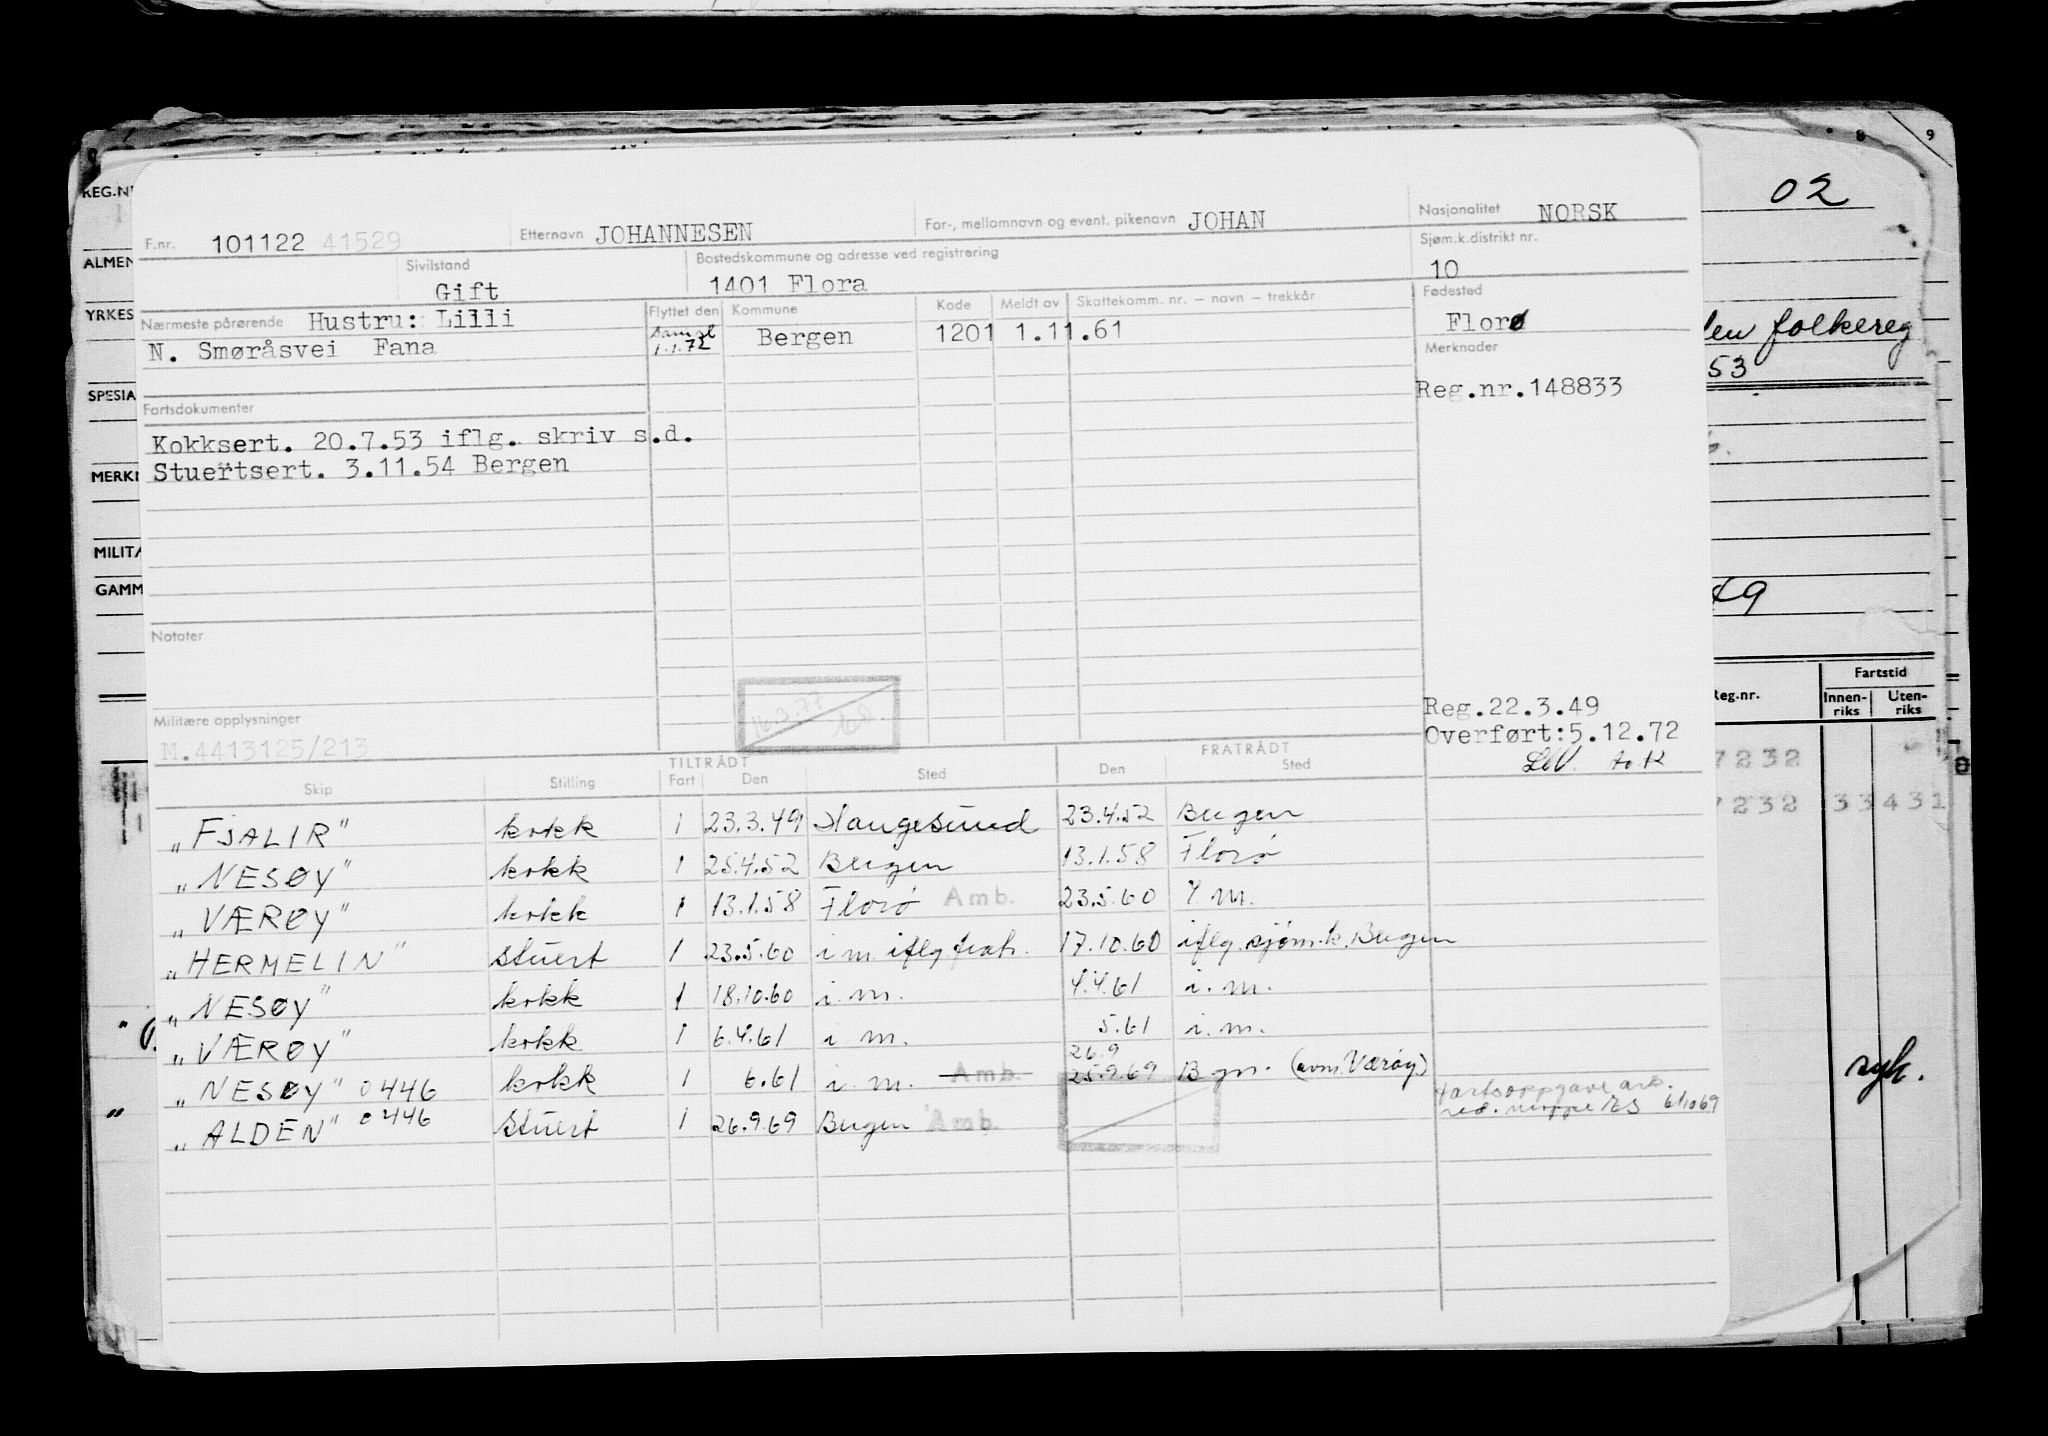 8 9
REG.N
02
F.nr. 101122 41529 Etternavn JOHANNESEN For-, mellomnavn og event. pikenavn JOHAN Nasjonalitet NORSK
ALMEN
Sivilstand Gift Bostedskommune og adresse ved registrering 1401 Flora Sjøm.k.distrikt nr. 10
YRKES
Nærmeste pårørende Hustru: Lilli Flyttet den Kommune Kode Meldt av Skattekomm. nr. – navn – trekkår Fødested
N. Smøråsvei Fana 1.1.72 Bergen 1201 1.11.61 Florø
folkereg
Merknader
53
SPESIA
Reg.nr.148833
Fartsdokumenter
Kokksert. 20.7.53 iflg. skriv s.d.
MERK
Stuertsert. 3.11.54 Bergen
MILITÆ
GAMM
49
Notater
Reg.nr. Fartstid
Innen-riks Uten-riks
Militære opplysninger
M.4413125/213
Reg.22.3.49
Overført:5.12.72
7232
7232 33431
TILTRÅDT FRATRÅDT
Skip Stilling Fart Den Sted Den Sted
„FJALIR" kokk 1 23.3.49 Haugesund 23.4.52 Bergen
„NESØY" kokk 1 25.4.52 Bergen 13.1.58 Florø
„VÆRØY" kokk 1 13.1.58 Florø Amb. 23.5.60 i m.
„HERMELIN" stuert 1 23.5.60 i m. iflg fratr. 17.10.60 iflg. sjøm.k. Bergen
„NESØY" kokk 1 18.10.60 i. m. 4.4.61 i. m.
„VÆRØY" kokk 1 6.4.61 i. m. 5.61 i. m.
„NESØY" 0446 kokk 1 6.61 i. m. Amb. 26.9 25.9.69 Bgn. (avm. Værøy)
syk.
„ALDEN" 0446 Stuert 1 26.9.69 Bergen Amb.
Fartsoppgave
6/10 69